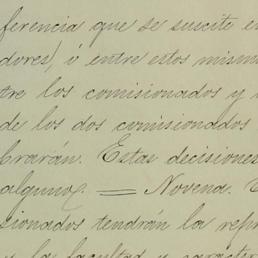 ferencia que se suscite e
dores), ó entre estos mism
tre los comisionados y
de los dos comisionados
brarán. Estas decisiones
alguno. = Novena.
sionados tendrán la repr
y la facultad y caracter